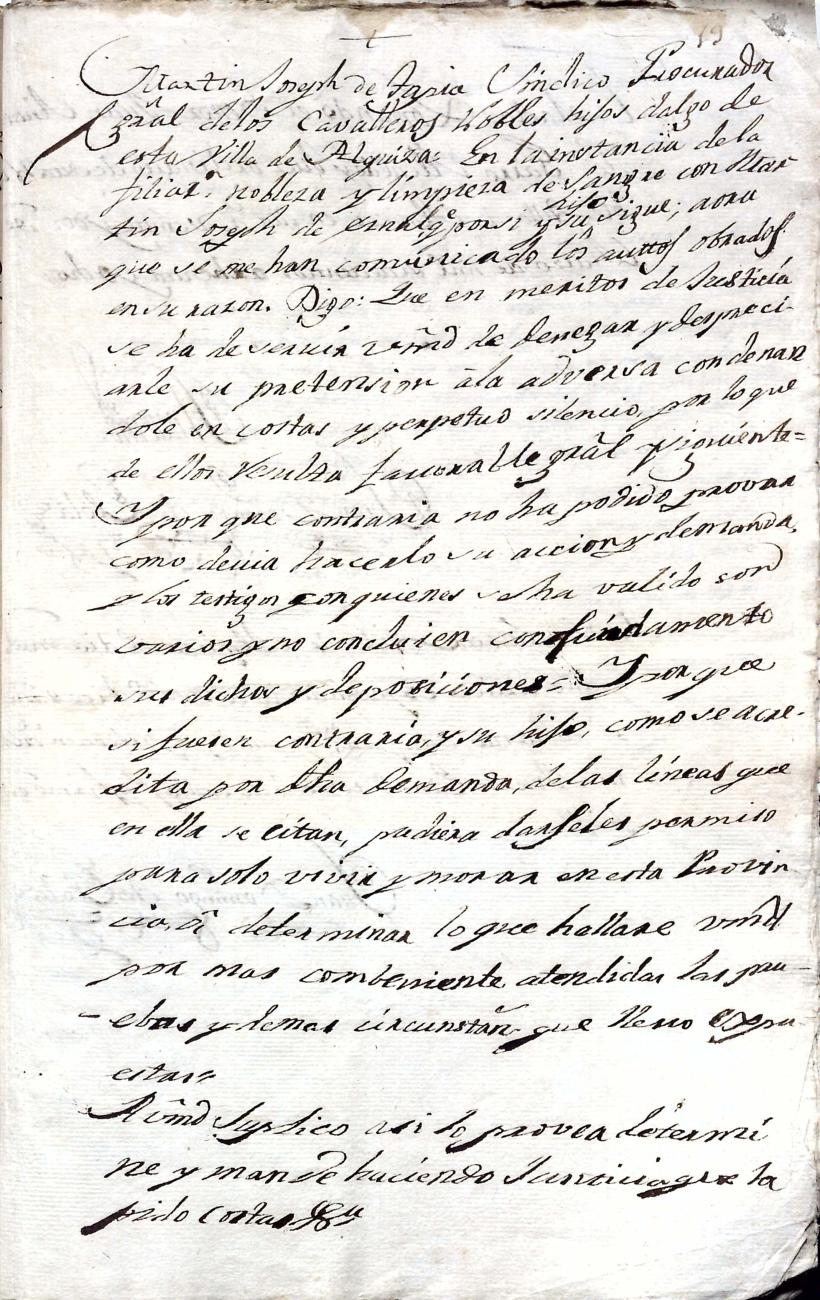 19
Martin Joseph de Sasia Sindico Procurador
grãl delos Cavalleros Nobles hijos dalgo de
esta Villa de Alquiza: En la instancia de la
filiaz.n nobleza y limpieza de sangre con Mar
hijo
tin Joseph de por si y su sigue; aora
que se me han comunicado los auttos obrados
en su razon. Digo: Que en meritos de Justicia
se ha de servir vmd de denegar y despreci-
arle su pretension àla adversa condenan
dole en costas y perpetuo silencio, por lo que
de ellos resulta favorable grãl y siguiente=
Y por que contraria no ha podido provar
como devia hacerlo su accion y demanda,
y los testigos con quienes se ha valido son
varios y no concluien con fundamento
sus dichos y deposiciones= Y por que
si fuesen contraria, y su hijo, como se acre-
dita por dha demanda, delas lineas que
en ella se citan, pudiera darseles permiso
para solo vivir y morar en esta Provin
cia, ò determinar lo que hallare vmd
por mas combeniente, atendidas las pru-
ebas y demas circunstãn que llevo expu-
estas=
A vmd Suplico asi lo provea determi
ne y mande haciendo Justicia que la
pido costas &a